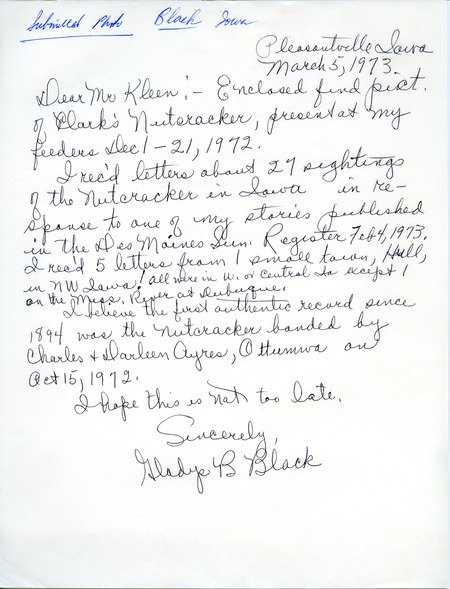 Submitted Photo Black Iowa
Pleasantville Iowa
March 5, 1973.
Dear Mr Kleen:- Enclosed find pict.
of Clark's Nutcracker, present at my
feeders Dec 1-21, 1972.
I rec'd letters about 27 sightings
of the Nutcracker in Iowa in re-
sponse to one of my stories published
in the Des Moines Sun. Register Feb 4, 1973.
I rec'd 5 letters from 1 small town, Hull,
in NW Iowa! All were in W. or Central Ia except 1
on the Miss. River at Dubuque.
I believe the first authentic record since
1894 was the Nutcracker banded by
Charles & Darleen Ayres, Ottumwa on
Oct 15, 1972.
I hope this is not too late.
Sincerely,
Gladys B Black